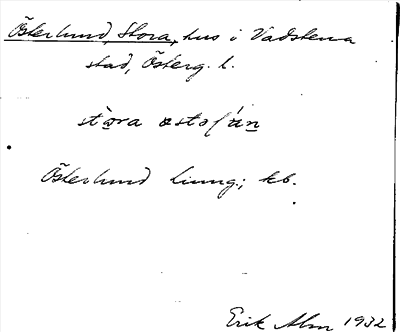 Österlund, Stora, hus i Vadstena
stad, Österg. l.
stora
Österlund Ljung.; kb.
Erik Alm 1932